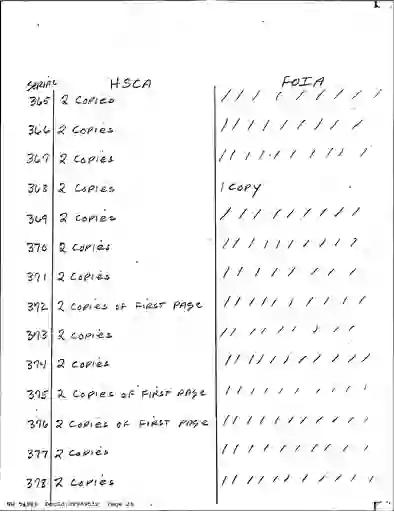 SERIAL HSCA FOIA
365 2 COPIES / / / / / / / / /
366 2 COPIES / / / / / / / / /
367 2 COPIES / / / / / / / / / /
368 2 COPIES 1 COPY
369 2 COPIES / / / / / / / / /
370 2 COPIES / / / / / / / / /
371 2 COPIES / / / / / / / /
372 2 COPIES OF FIRST PAGE / / / / / / / / / /
373 2 COPIES / / / / / / / / /
374 2 COPIES / / / / / / / / / / /
375 2 COPIES OF FIRST PAGE / / / / / / / / / /
376 2 COPIES OF FIRST PAGE / / / / / / / / / /
377 2 COPIES / / / / / / / / /
378 2 COPIES / / / / / / / / / /
Page 26